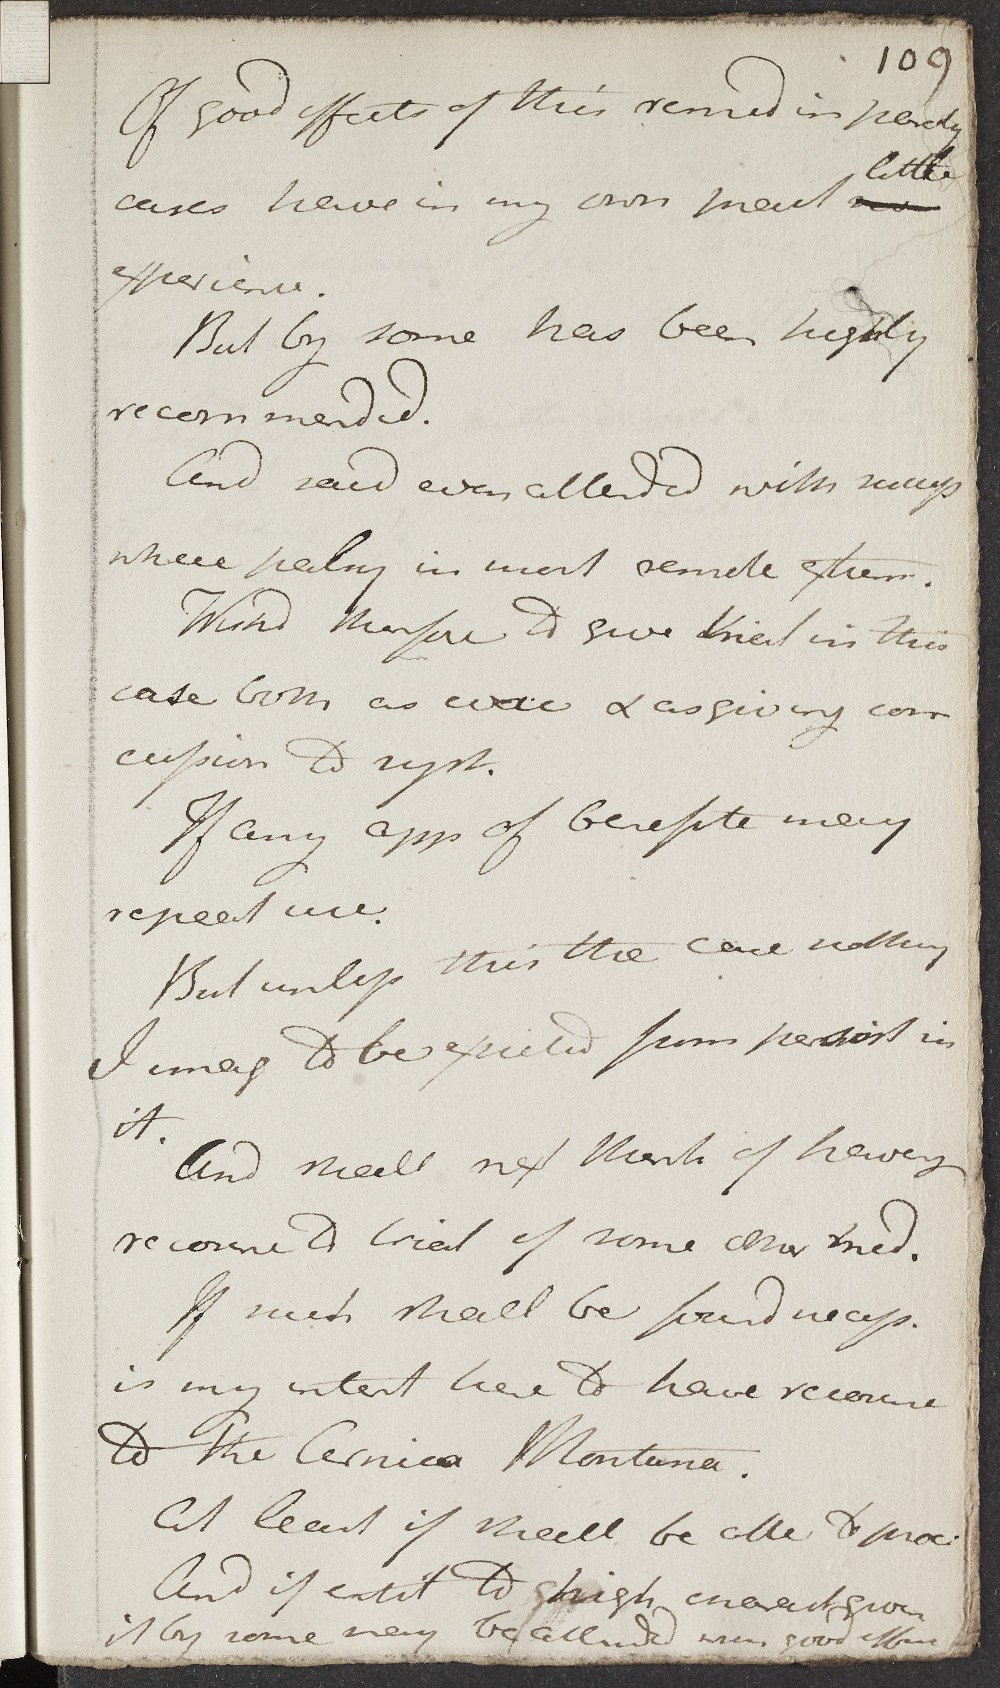 109
Of good effects of this remed in paraly
little
cases have in my own pract no
experience.
But by some has been highly
recommended.
And said even attended with success
where palsy in most remote extrem.
Wishd therefore to give trial in this
case both as evac & as giving con
cussion to syst.
If any app of benefite may
repeat use.
But unless this the case nothing
I imag to be expected from persist in
it.
And shall next think of having
recourse to trial of some other med.
If such shall be found necess.
is my intent here to have recourse
to the Arnica Montana.
At least if shall be able to proc:
And if entit to high charact given
it by some may be attended with good effects